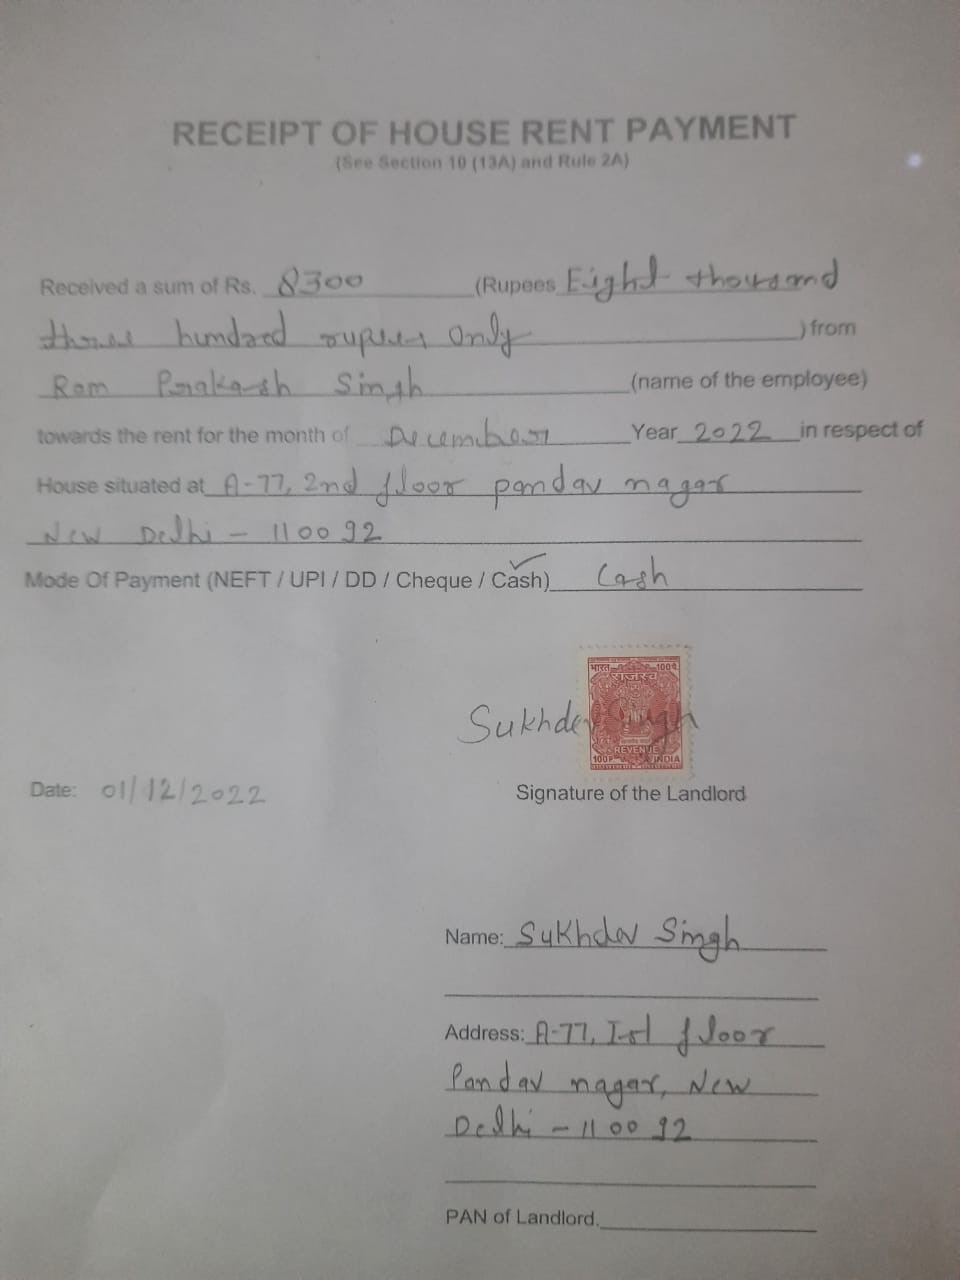 RECEIPT OF HOUSE RENT PAYMENT
(See Section 10 (13A) and Rule 2A)
Received a sum of Rs. 8300 (Rupees Eight thousand
three hundred rupees only ) from
Ram Prakash Singh (name of the employee)
towards the rent for the month of December Year 2022 in respect of
House situated at A-77, 2nd floor pandav nagar
New Delhi - 110092
Mode Of Payment (NEFT / UPI / DD / Cheque / Cash) Cash
भारत 100पै.
राजस्व
Sukhdev Singh
REVENUE
100P INDIA
Date: 01/12/2022
Signature of the Landlord
Name: Sukhdev Singh
Address: A-77, Ist floor
Pandav nagar, New
Delhi - 110092
PAN of Landlord.